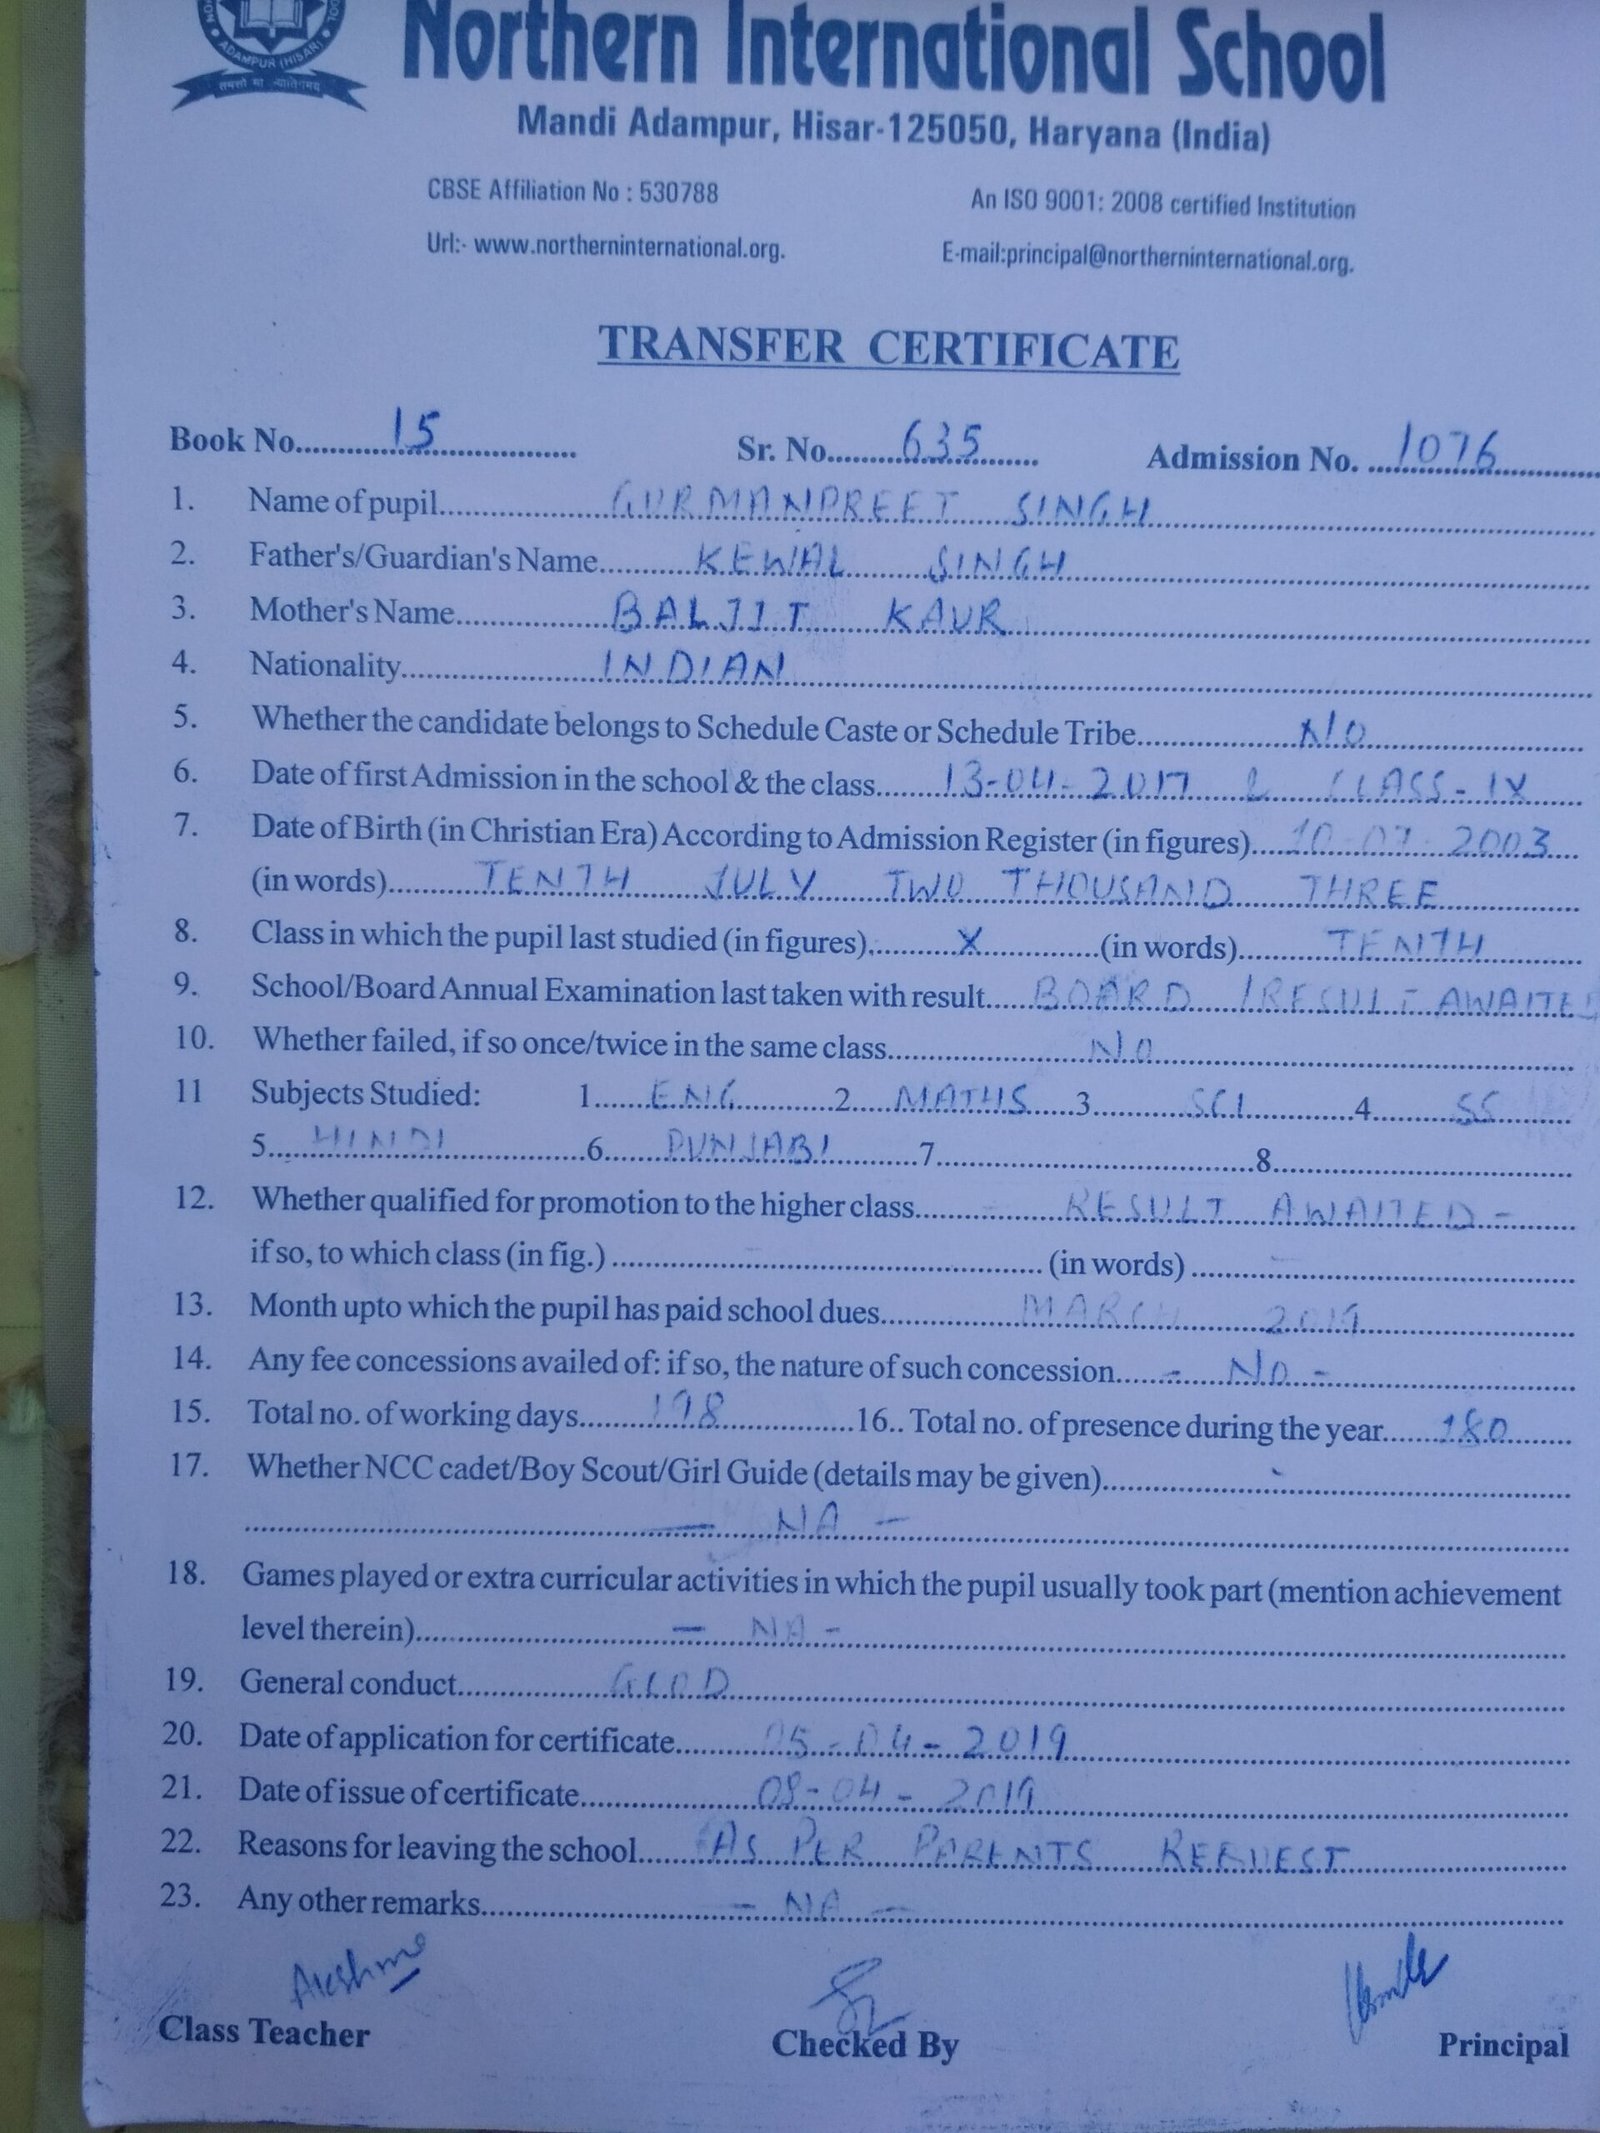 ADAMPUR (HISAR)
तमसो मा ज्योतिर्गमय
Northern International School
Mandi Adampur, Hisar-125050, Haryana (India)
CBSE Affiliation No : 530788 An ISO 9001: 2008 certified Institution
Url:- www.northerninternational.org. E-mail:principal@northerninternational.org.
TRANSFER CERTIFICATE
Book No. 15 Sr. No. 635 Admission No. 1076
1. Name of pupil GURMANPREET SINGH
2. Father's/Guardian's Name KEWAL SINGH
3. Mother's Name BALJIT KAUR
4. Nationality INDIAN
5. Whether the candidate belongs to Schedule Caste or Schedule Tribe NO
6. Date of first Admission in the school & the class 13-04-2017 & CLASS-IX
7. Date of Birth (in Christian Era) According to Admission Register (in figures) 10-07-2003
(in words) TENTH JULY TWO THOUSAND THREE
8. Class in which the pupil last studied (in figures) X (in words) TENTH
9. School/Board Annual Examination last taken with result BOARD /RESULT-AWAITED
10. Whether failed, if so once/twice in the same class NO
11 Subjects Studied: 1 ENG 2 MATHS 3 SCI 4 SS
5 HINDI 6 PUNJABI 7 8
12. Whether qualified for promotion to the higher class - RESULT AWAITED -
if so, to which class (in fig.) (in words)
13. Month upto which the pupil has paid school dues MARCH 2019
14. Any fee concessions availed of: if so, the nature of such concession - NO -
15. Total no. of working days 198 16.. Total no. of presence during the year 180
17. Whether NCC cadet/Boy Scout/Girl Guide (details may be given)
- NA -
18. Games played or extra curricular activities in which the pupil usually took part (mention achievement
level therein) - NA -
19. General conduct GOOD
20. Date of application for certificate 05-04-2019
21. Date of issue of certificate 08-04-2019
22. Reasons for leaving the school AS PER PARENTS REQUEST
23. Any other remarks - NA -
Class Teacher Checked By Principal